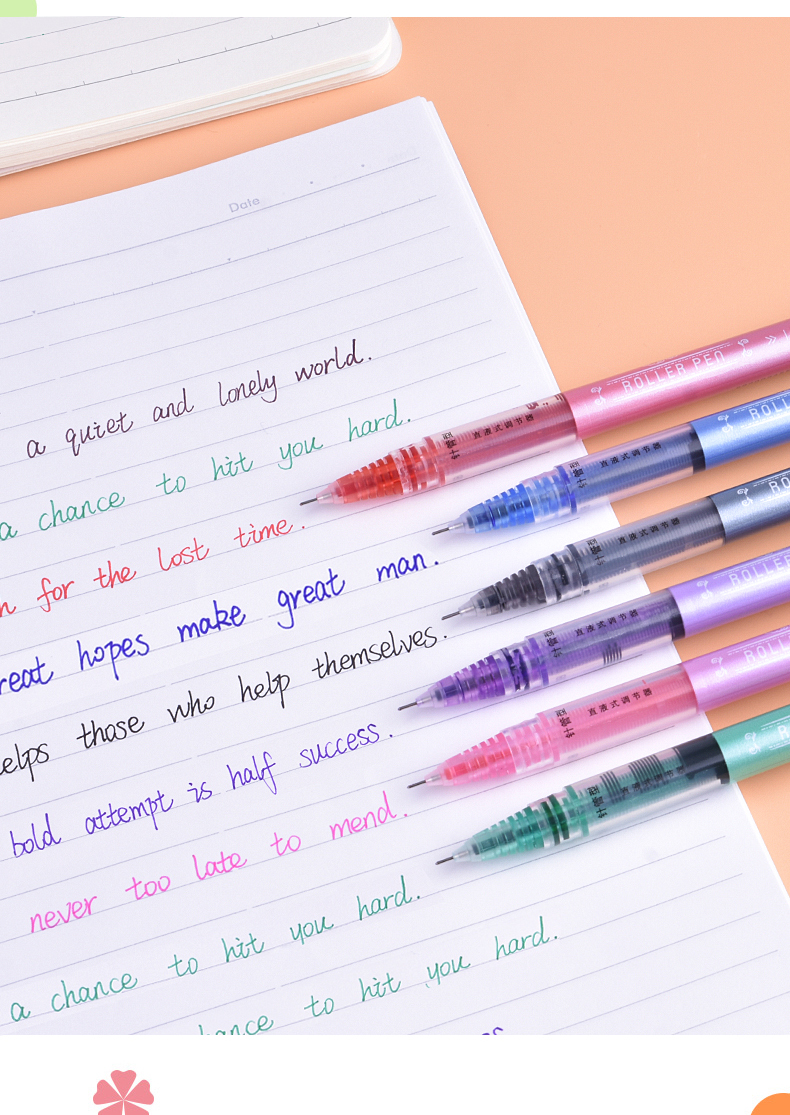 Date
a quiet and lonely world.
a chance to hit you hard.
for the lost time.
hopes make great man.
those who help themselves.
bold attempt is half success.
never too late to mend.
a chance to hit you hard.
to hit you hard.
ROLLER PEN
针管型 直液式调节器
针管型 直液式调节器
针管型 直液式调节器
针管型 直液式调节器
针管型 直液式调节器
针管型 直液式调节器